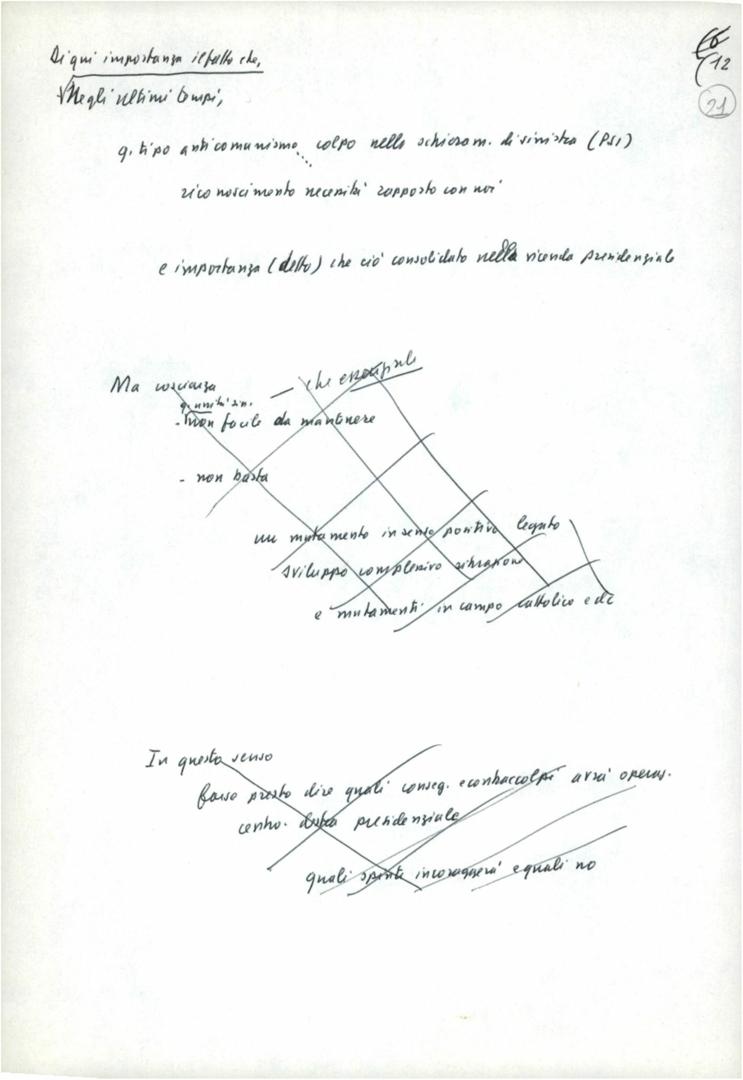 6
12
21
Di qui importanza il fatto che,
Negli ultimi tempi,
q. tipo anticomunismo... colpo nello schieram. di sinistra (PSI)
riconoscimento necessità rapporto con noi
e importanza (detto) che ciò consolidato nella vicenda presidenziale
Ma coscienza — che essenziale
q. unità sin.
- non facile da mantenere
- non basta
un mutamento in senso positivo legato
sviluppo complessivo situazione
e mutamenti in campo cattolico e dc
In questo senso
forse presto dire quali conseg. e contraccolpi avrà operaz.
centro-destra presidenziale
quali spinte incoraggerà e quali no